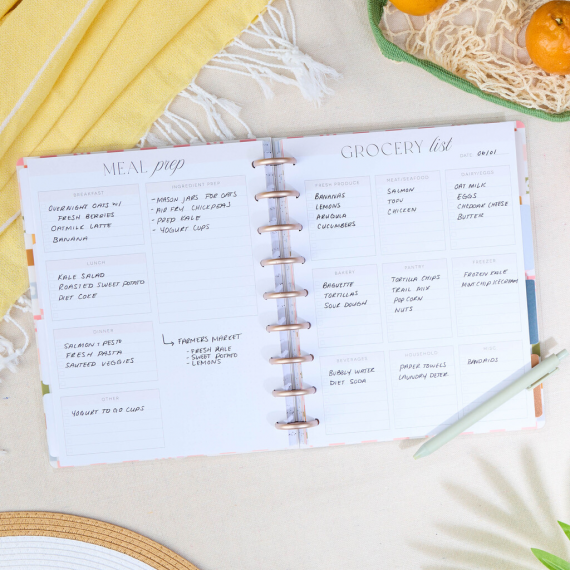 MEAL prep
BREAKFAST
OVERNIGHT OATS w/
FRESH BERRIES
OATMILK LATTE
BANANA
INGREDIENT PREP
- MASON JARS FOR OATS
- AIR FRY CHICKPEAS
- PREP KALE
- YOGURT CUPS
LUNCH
KALE SALAD
ROASTED SWEET POTATO
DIET COKE
DINNER
SALMON + PESTO
FRESH PASTA
SAUTEED VEGGIES
FARMERS MARKET
- FRESH KALE
- SWEET POTATO
- LEMONS
OTHER
YOGURT TO GO CUPS
GROCERY list
DATE: 04/01
FRESH PRODUCE
BANANAS
LEMONS
ARUGULA
CUCUMBERS
MEAT/SEAFOOD
SALMON
TOFU
CHICKEN
DAIRY/EGGS
OAT MILK
EGGS
CHEDDAR CHEESE
BUTTER
BAKERY
BAGUETTE
TORTILLAS
SOUR DOUGH
PANTRY
TORTILLA CHIPS
TRAIL MIX
POPCORN
NUTS
FREEZER
FROZEN KALE
MINT CHIP ICECREAM
BEVERAGES
BUBBLY WATER
DIET SODA
HOUSEHOLD
PAPER TOWELS
LAUNDRY DETER.
MISC
BANDAIDS